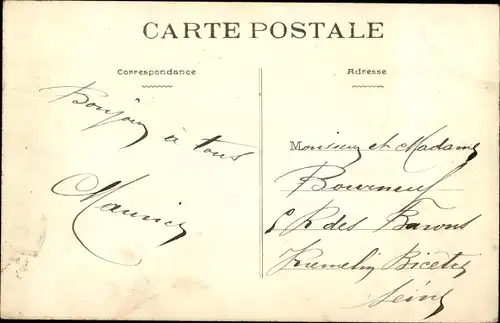 CARTE POSTALE
Correspondance
Adresse
Bonjour à tous
Maurice
Monsieur et Madame
Bourneuf
R des Barons
Kremelin Bicetre
Seine